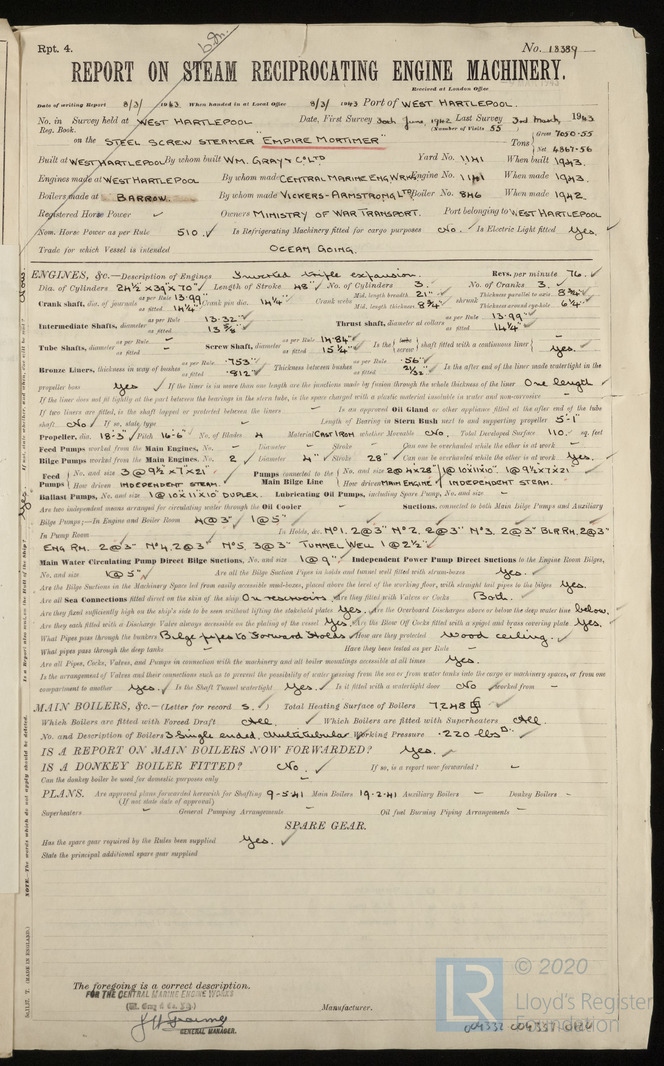 Rpt. 4.
No. 18389
REPORT ON STEAM RECIPROCATING ENGINE MACHINERY.
Received at London Office
Date of writing Report 8/3/1943 When handed in at Local Office 8/3/1943 Port of WEST HARTLEPOOL.
No. in Survey held at WEST HARTLEPOOL Date, First Survey 30th June 1942 Last Survey 3rd March, 1943
Reg. Book. (Number of Visits 55
on the STEEL SCREW STEAMER "EMPIRE MORTIMER" Tons Gross 7050.55 Net 4867.56
Built at WEST HARTLEPOOL By whom built WM. GRAY & CO LTD Yard No. 1141 When built 1943.
Engines made at WEST HARTLEPOOL By whom made CENTRAL MARINE ENG WKS Engine No. 1141 When made 1943.
Boilers made at BARROW. By whom made VICKERS-ARMSTRONG LTD Boiler No. 846 When made 1942.
Registered Horse Power Owners MINISTRY OF WAR TRANSPORT. Port belonging to WEST HARTLEPOOL
Nom. Horse Power as per Rule 510. Is Refrigerating Machinery fitted for cargo purposes No. Is Electric Light fitted Yes.
Trade for which Vessel is intended OCEAN GOING.
ENGINES, &c.—Description of Engines Inverted triple expansion. Revs. per minute 76.
Dia. of Cylinders 24½ x 39 x 70" Length of Stroke 48" No. of Cylinders 3. No. of Cranks 3.
Crank shaft, dia. of journals as per Rule 13.99 as fitted 14¼" Crank pin dia. 14¼" Crank webs Mid. length breadth 21" Mid. length thickness 8¾" shrunk Thickness parallel to axis 8¾" Thickness around eye-hole 6¼"
Intermediate Shafts, diameter as per Rule 13.32" as fitted 13⅜" Thrust shaft, diameter at collars as per Rule 13.99" as fitted 14¼"
Tube Shafts, diameter as per Rule – as fitted – Screw Shaft, diameter as per Rule 14.84" as fitted 15¼" Is the tube screw shaft fitted with a continuous liner Yes.
Bronze Liners, thickness in way of bushes as per Rule .753" as fitted .812" Thickness between bushes as per Rule .56" as fitted 21/32" Is the after end of the liner made watertight in the
propeller boss Yes If the liner is in more than one length are the junctions made by fusion through the whole thickness of the liner One length
If the liner does not fit tightly at the part between the bearings in the stern tube, is the space charged with a plastic material insoluble in water and non-corrosive –
If two liners are fitted, is the shaft lapped or protected between the liners – Is an approved Oil Gland or other appliance fitted at the after end of the tube
shaft No If so, state type – Length of Bearing in Stern Bush next to and supporting propeller 5'-1"
Propeller, dia. 18'-3" Pitch 16'-6" No. of Blades 4 Material CAST IRON whether Moveable No. Total Developed Surface 110. sq. feet
Feed Pumps worked from the Main Engines, No. – Diameter – Stroke – Can one be overhauled while the other is at work –
Bilge Pumps worked from the Main Engines, No. 2 Diameter 4" Stroke 28" Can one be overhauled while the other is at work Yes.
Feed Pumps No. and size 3 @ 9½" x 7" x 21" How driven INDEPENDENT STEAM. Pumps connected to the Main Bilge Line No. and size 2 @ 4 x 28" / 1 @ 10 x 11 x 10". 1 @ 9½ x 7 x 21 How driven MAIN ENGINE / INDEPENDENT STEAM.
Ballast Pumps, No. and size 1 @ 10 x 11 x 10" DUPLEX. Lubricating Oil Pumps, including Spare Pump, No. and size –
Are two independent means arranged for circulating water through the Oil Cooler – Suctions, connected to both Main Bilge Pumps and Auxiliary
Bilge Pumps;—In Engine and Boiler Room 4 @ 3" 1 @ 5"
In Pump Room – In Holds, &c. No 1. 2 @ 3" No 2. 2 @ 3" No 3. 2 @ 3" BLR RM. 2 @ 3"
ENG RM. 2 @ 3" No 4. 2 @ 3" No 5. 3 @ 3" TUNNEL WELL 1 @ 2½"
Main Water Circulating Pump Direct Bilge Suctions, No. and size 1 @ 9" Independent Power Pump Direct Suctions to the Engine Room Bilges,
No. and size 1 @ 5" Are all the Bilge Suction Pipes in holds and tunnel well fitted with strum-boxes Yes.
Are the Bilge Suctions in the Machinery Space led from easily accessible mud-boxes, placed above the level of the working floor, with straight tail pipes to the bilges Yes.
Are all Sea Connections fitted direct on the skin of the ship On reservoirs Are they fitted with Valves or Cocks Both.
Are they fixed sufficiently high on the ship's side to be seen without lifting the stokehold plates Yes. Are the Overboard Discharges above or below the deep water line below.
Are they each fitted with a Discharge Valve always accessible on the plating of the vessel Yes. Are the Blow Off Cocks fitted with a spigot and brass covering plate Yes.
What Pipes pass through the bunkers Bilge pipes to forward Holds How are they protected Wood ceiling.
What pipes pass through the deep tanks – Have they been tested as per Rule –
Are all Pipes, Cocks, Valves, and Pumps in connection with the machinery and all boiler mountings accessible at all times Yes.
Is the arrangement of Valves and their connections such as to prevent the possibility of water passing from the sea or from water tanks into the cargo or machinery spaces, or from one
compartment to another Yes. Is the Shaft Tunnel watertight Yes. Is it fitted with a watertight door No worked from –
MAIN BOILERS, &c.—(Letter for record S.) Total Heating Surface of Boilers 7248
Which Boilers are fitted with Forced Draft All. Which Boilers are fitted with Superheaters All.
No. and Description of Boilers 3 Single ended, Multitubular Working Pressure 220 lbs
IS A REPORT ON MAIN BOILERS NOW FORWARDED? Yes.
IS A DONKEY BOILER FITTED? No. If so, is a report now forwarded? –
Can the donkey boiler be used for domestic purposes only –
PLANS. Are approved plans forwarded herewith for Shafting 9-5-41 Main Boilers 19-2-41 Auxiliary Boilers – Donkey Boilers –
(If not state date of approval)
Superheaters – General Pumping Arrangements – Oil fuel Burning Piping Arrangements –
SPARE GEAR.
Has the spare gear required by the Rules been supplied Yes.
State the principal additional spare gear supplied
The foregoing is a correct description.
FOR THE CENTRAL MARINE ENGINE WORKS
(W. Gray & Co. Ltd.)
Manufacturer.
GENERAL MANAGER.
NOTE.—The words which do not apply should be deleted.
(MADE IN ENGLAND)
LR
© 2020
Lloyd's Register
Foundation